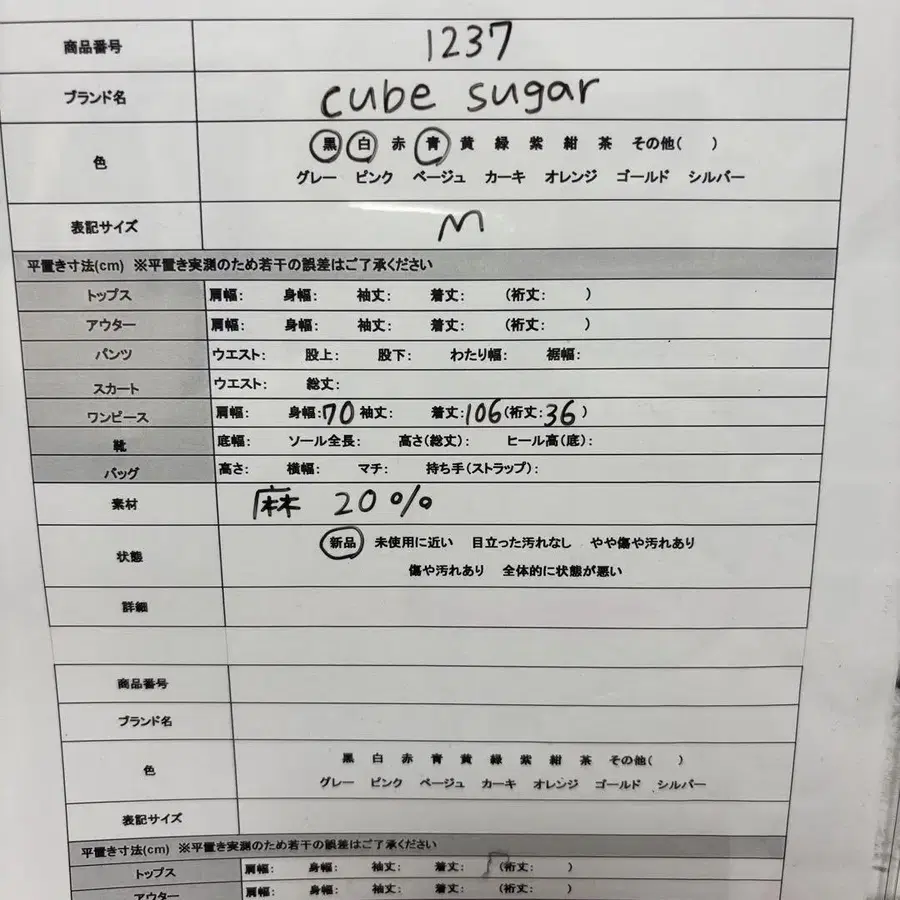 商品番号 1237
ブランド名 cube sugar
色 黒 白 赤 青 黄 緑 紫 紺 茶 その他( )
グレー ピンク ベージュ カーキ オレンジ ゴールド シルバー
表記サイズ M
平置き寸法(cm) ※平置き実測のため若干の誤差はご了承ください
トップス 肩幅: 身幅: 袖丈: 着丈: (裄丈: )
アウター 肩幅: 身幅: 袖丈: 着丈: (裄丈: )
パンツ ウエスト: 股上: 股下: わたり幅: 裾幅:
スカート ウエスト: 総丈:
ワンピース 肩幅: 身幅:70 袖丈: 着丈:106(裄丈:36 )
靴 底幅: ソール全長: 高さ(総丈): ヒール高(底):
バッグ 高さ: 横幅: マチ: 持ち手(ストラップ):
素材 麻 20%
状態 新品 未使用に近い 目立った汚れなし やや傷や汚れあり
傷や汚れあり 全体的に状態が悪い
詳細
商品番号
ブランド名
色 黒 白 赤 青 黄 緑 紫 紺 茶 その他( )
グレー ピンク ベージュ カーキ オレンジ ゴールド シルバー
表記サイズ
平置き寸法(cm) ※平置き実測のため若干の誤差はご了承ください
トップス 肩幅: 身幅: 袖丈: 着丈: (裄丈: )
アウター 肩幅: 身幅: 袖丈: 着丈: (裄丈: )